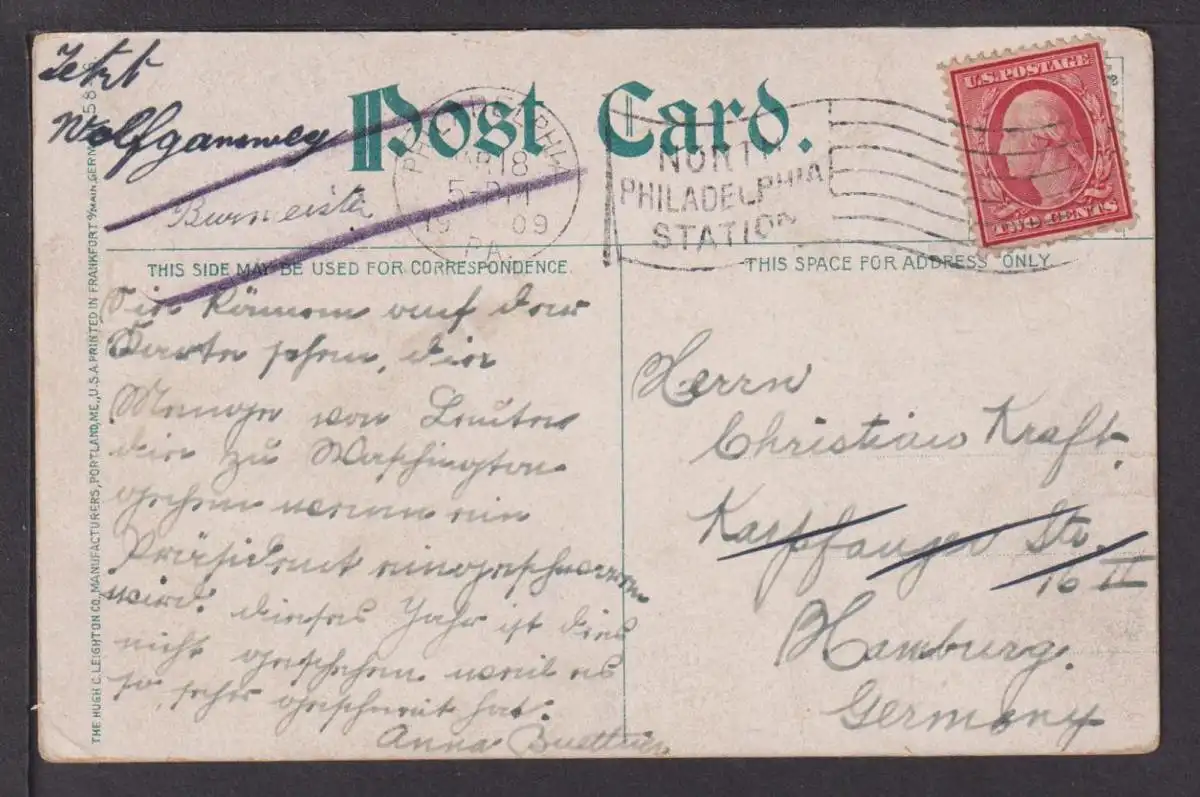 Jetzt
Wolfgangsweg
Burmeister
Post Card.
PHILADELPHIA
18
5-PM
19 09
PA.
NORTH
PHILADELPHIA
STATION
U.S. POSTAGE
TWO CENTS
THIS SIDE MAY BE USED FOR CORRESPONDENCE.
THIS SPACE FOR ADDRESS ONLY.
Sie können auf der
Karte sehen, die
Menge von Leuten
die zu Washington
gehen wenn ein
Präsident eingeschworen
wird. dieses Jahr ist dies
nicht geschehen weil es
so sehr geschneit hat.
Anna
Herrn
Christian Kraft.
Str.
16 II
Hamburg.
Germany
THE HUGH C. LEIGHTON CO., MANUFACTURERS, PORTLAND, ME., U.S.A. PRINTED IN FRANKFORT o/MAIN, GERM